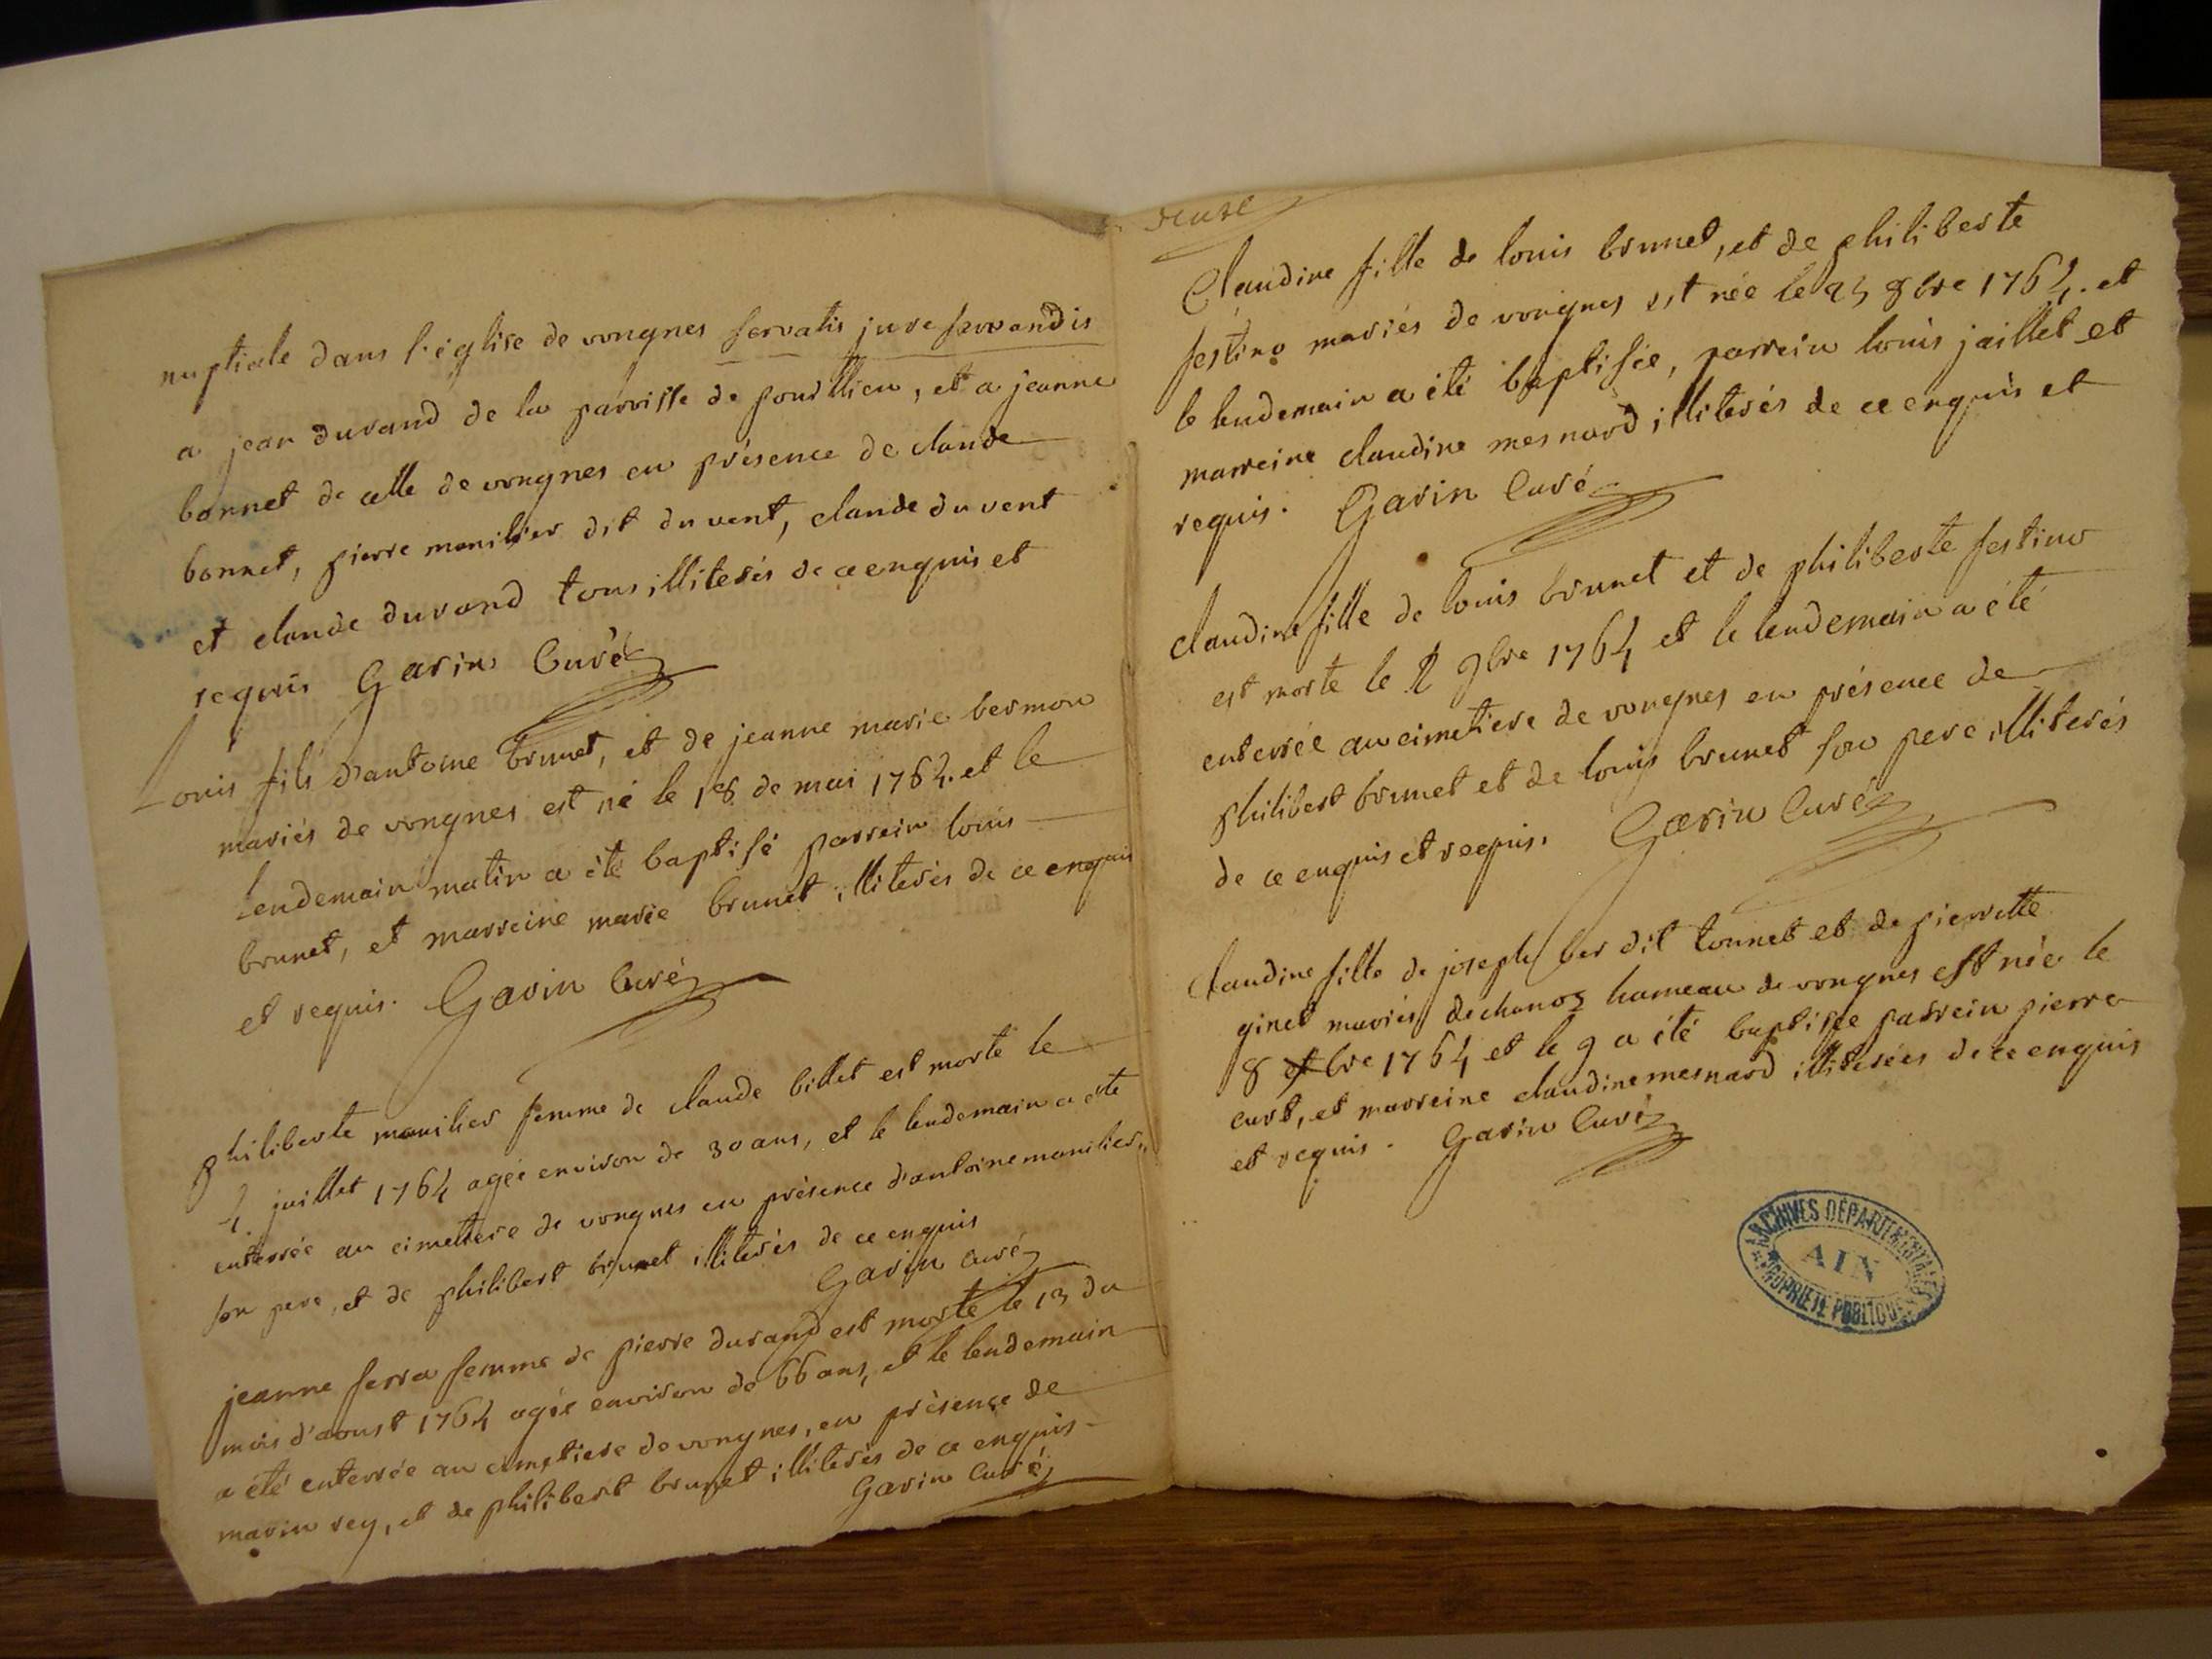 nuptiale dans l'église de vongnes servatis jure servandis
a jean durand de la parroisse de pourllieu, et a jeanne
bonnet de celle de vongnes en présence de claude
bonnet, pierre manilier dit du vent, claude du vent
et claude durand tous illiterés de ce enquis et
requis Garin Curé
Louis fils d'antoine brunet, et de jeanne marie bermon
mariés de vongnes est né le 18 de mai 1764. et le
lendemain matin a été baptisé parrein louis
brunet, et marreine marie brunet illiterés de ce enquis
et requis. Garin Curé
philiberte manilier femme de claude billet est morte le
4 juillet 1764 agée environ de 30 ans, et le lendemain a été
enterrée au cimettere de vongnes en présence d'antoine manilier,
son pere, et de philibert brunet illiterés de ce enquis
Garin curé
jeanne serra femme de pierre durand est morte le 13 du
mois d'aoust 1764 agée environ de 66 ans, et le lendemain
a été enterrée au cimetiere de vongnes, en présence de
marin rey, et de philibert brunet illiterés de ce enquis
Garin Curé
Claudine fille de louis brunet, et de philiberte
festino mariés de vongnes est née le 25 8bre 1764. et
le lendemain a été baptisée, parrein louis jaillet et
marreine claudine mesnard illiterés de ce enquis et
requis. Garin Curé
claudine fille de louis brunet et de philiberte festino
est morte le 9bre 1764 et le lendemain a été
enterrée au cimetiere de vongnes en présence de
philibert brunet et de louis brunet son pere illiterés
de ce enquis et requis. Garin Curé
Claudine fille de joseph ber dit tonnet et de pierrette
ginet mariés de chanoz hameau de vongnes est née le
8 bre 1764 et le 9 a été baptisée parrein pierre
curt, et marreine claudine mesnard illiterées de ce enquis
et requis. Garin Curé
ARCHIVES DÉPARTEMENTALES
AIN
PROPRIÉTÉ PUBLIQUE